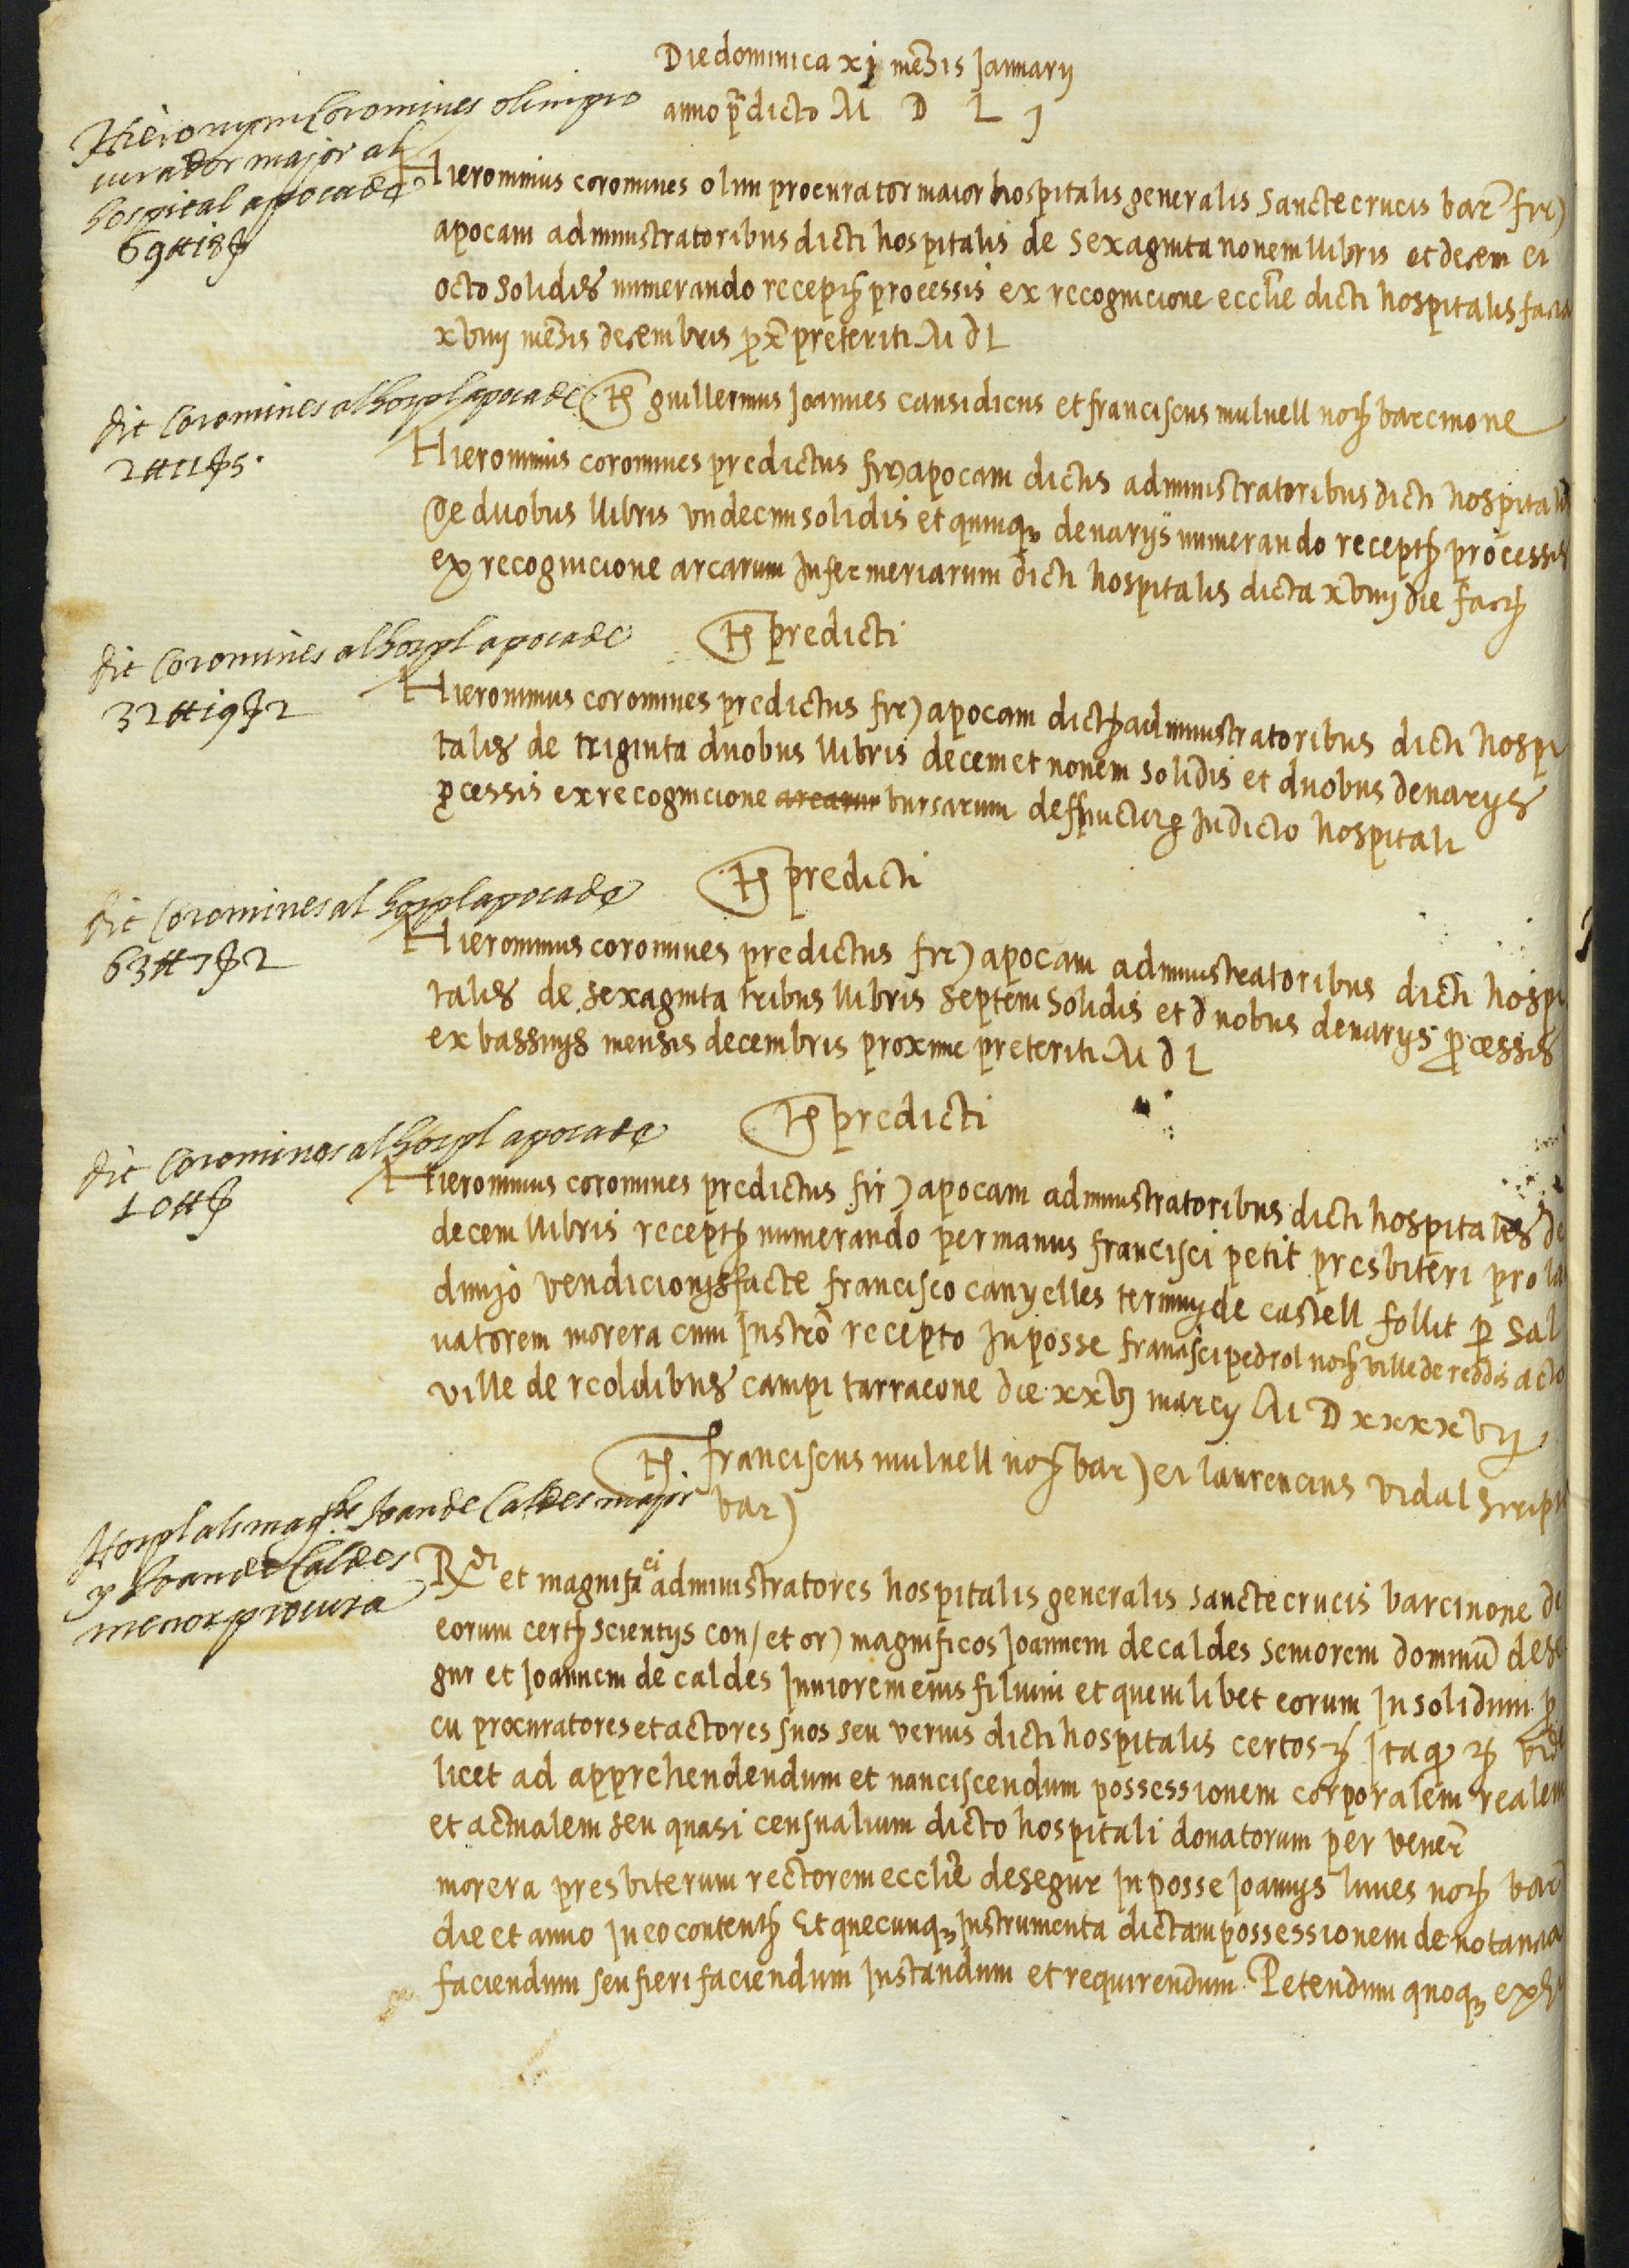 Die dominica xj mensis Januarij
anno predicto M D L J
Hieronym Coromines olim pro
curador major al
hospital apoca de
69 ℔ i8 ẞ
Hieronimus coromines olim procurator maior hospitalis generalis Sancte crucis bar) fir)
apocam administratoribus dicti hospitalis de sexaginta nonem llibris et decem et
octo solidis numerando recept) processis ex recognicione ecclie dicti hospitalis facta
xviiij mensis decembris prox preteriti M d L
Ts guillermus Joannes causidicus et franciscus mulnell not) barcinone
dit Coromines al hospl apoca de
2 ℔ 11 ẞ 5.
Hieronimus coromines predictus fir) apocam dictis administratoribus dicti hospitalis
De duobus llibris vndecim solidis et quinq) denarijs numerando recept) processis
ex recognicione arcarum Infermeriarum dicti hospitalis dicta xviiij die fact)
Ts predicti
dit Coromines al hospl apoca de
32 ℔ i9 ẞ 2
Hieronimus coromines predictus fir) apocam dict) administratoribus dicti hospi
talis de triginta duobus llibris decem et nonem solidis et duobus denarijs
pcessis ex recognicione arcarum bursarum deffuctor) In dicto hospitali
Ts predicti
dit Coromines al hospl apoca de
63 ℔ 7 ẞ 2
Hieronimus coromines predictus fir) apocam administratoribus dicti hospi
talis de sexaginta tribus llibris septem solidis et duobus denarijs pcessis
ex bassinijs mensis decembris proxime preteriti M d L
Ts predicti
dit Coromines al hospl apoca de
10 ℔ ẞ
Hieronimus coromines predictus fir) apocam administratoribus dicti hospitalis de
decem llibris recept) numerando per manus francisci petit presbiteri pro la
dimjo vendicionjs facte francisco canyelles terminj de castell follit p Sal
uatorem morera cum Instro recepto In posse francisci pedrol not) ville de reddis acto
ville de reoldibus campi tarracone die xxvj marcij M D xxxx vij
Ts. franciscus mulnell not) bar) et laurencius vidal script)
bar)
Hospl als mag.chs Joan de Caldes major
y Joan de Caldes
menor procura
R.di et magnifici administratores hospitalis generalis sancte crucis barcinone de
eorum cert) scientijs con/ et or) magnificos Joannem de caldes seniorem dominu de se
gur et Joannem de caldes Juniorem eius filium et quemlibet eorum In solidum p
cu procuratores et actores suos seu verius dicti hospitalis certos ɀ Ita q ɀ vide
licet ad apprehendendum et nanciscendum possessionem corporalem realem
et actualem seu quasi censualium dicto hospitali donatorum per vener)
morera presbiterum rectorem ecclie de segur In posse Joannjs lunes not) bar)
die et anno In eo content) Et quecunq) Instrumenta dictam possessionem denotancia
faciendum seu fieri faciendum Instandum et requirendum Petendum quoq) exhi